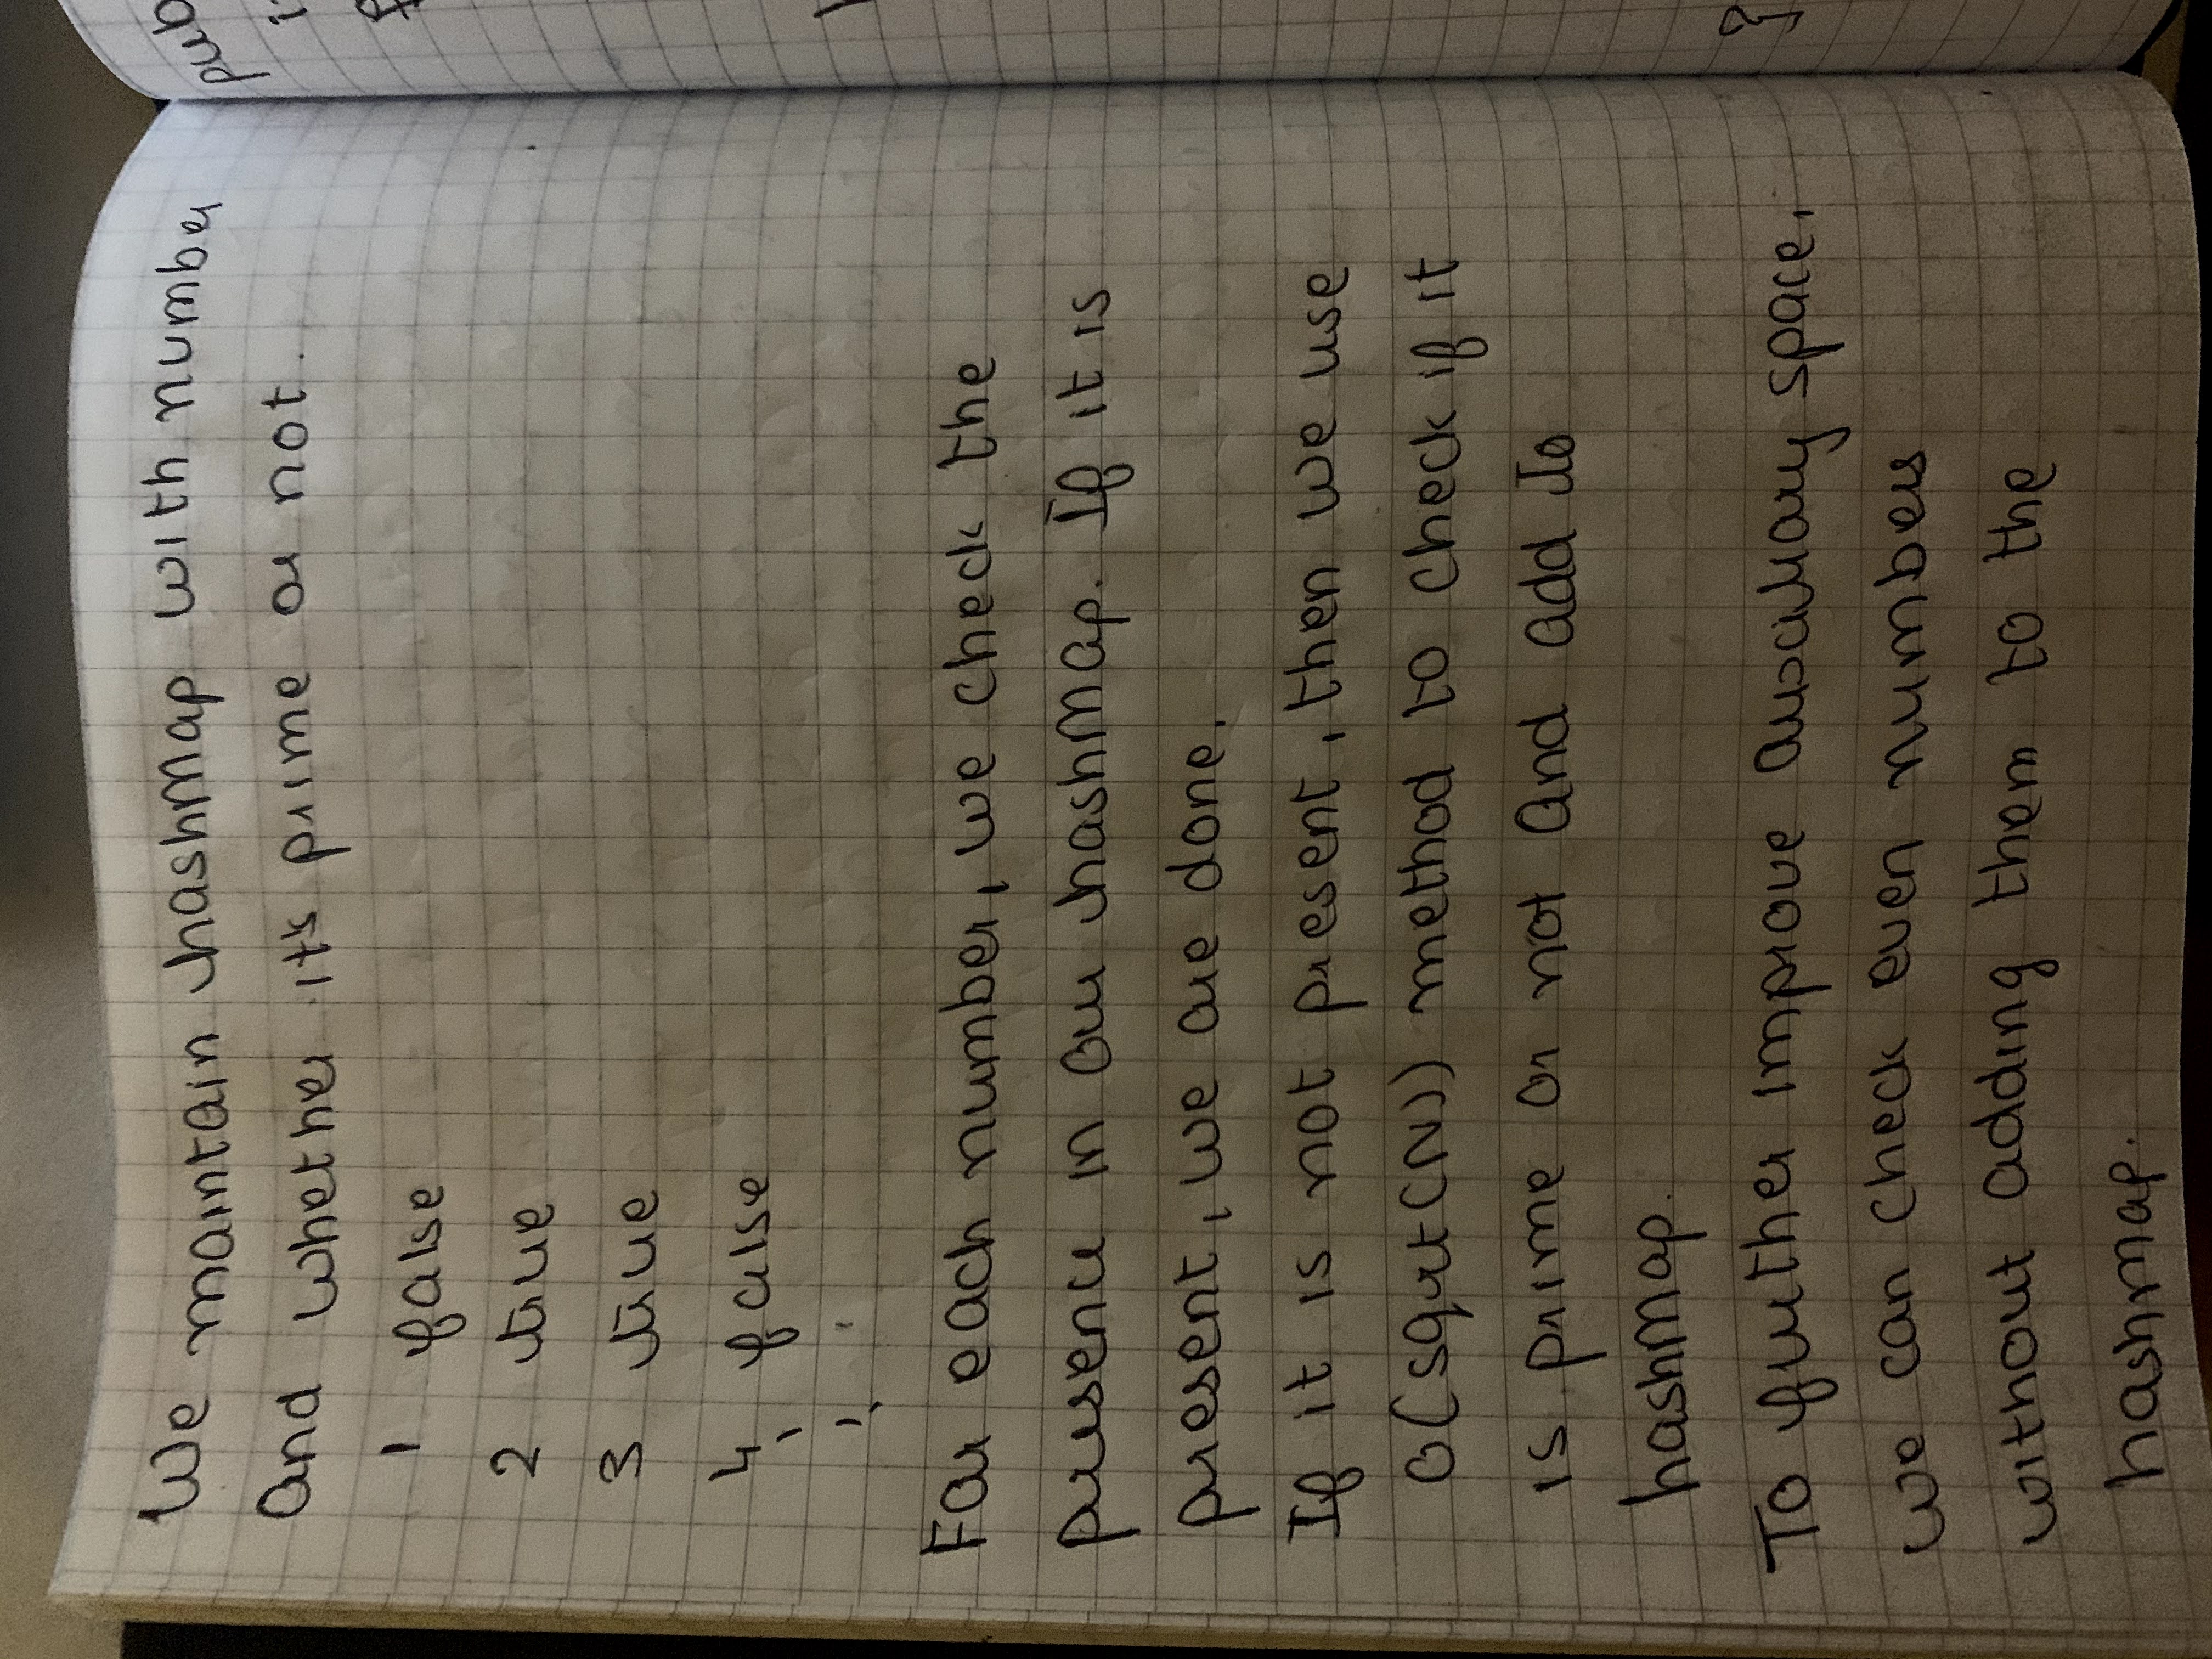 We maintain hashMap with number
And whether it's prime or not.
1 false
2 true
3 true
4 false
For each number, we check the
presence in our hashMap. If it is
present, we are done.
If it is not present, then we use
O(sqrt(N)) method to check if it
is prime or not And add to
hashMap.
To further improve auxiliary space,
we can check even numbers
without adding them to the
hashmap.
pub